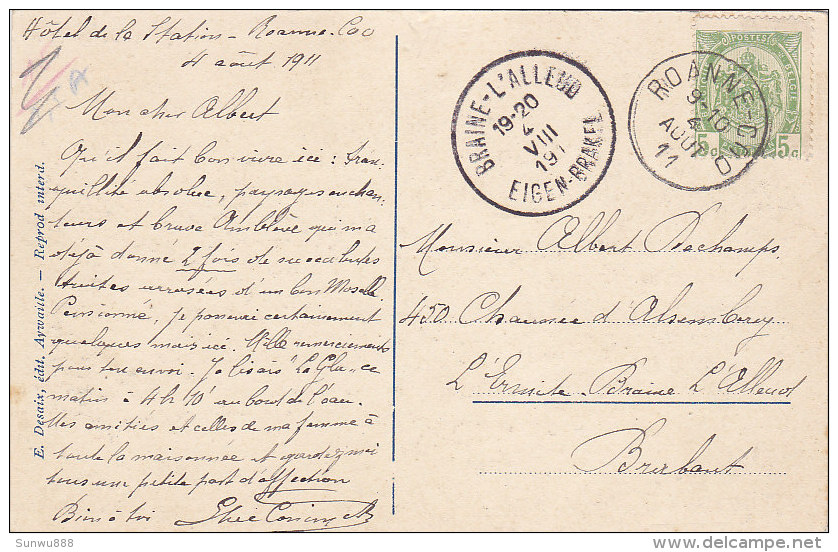 Hôtel de la Station - Roanne-Coo
4 août 1911
Mon cher Albert
Qu'il fait bon vivre ici : tran-
quillité absolue, paysages enchan-
teurs et brave Amblève qui m'a
déjà donné 2 fois de succulentes
truites arrosées d'un bon Moselle
Pensionné, je passerai certainement
quelques mois ici. Mille remerciements
pour ton envoi. Je lisais "La Glu" ce
matin à 4h 10' au bord de l'eau.
Mes amitiés et celles de ma femme à
toute la maisonnée et gardez-moi
tous une petite part d'affection
Bien à toi
E. Desaix, édit. Aywaille. — Reprod interd.
BRAINE-L'ALLEUD
19-20
4
VIII
191
EIGEN-BRAKEL
ROANNE-COO
9-10
4
AOUT
11
POSTES
5c 5c
Monsieur Albert Dechamps
450 Chaussée d'Alsemberg
L'Ermite - Braine L'Alleud
Brabant
Sunwu888
delcampe.net